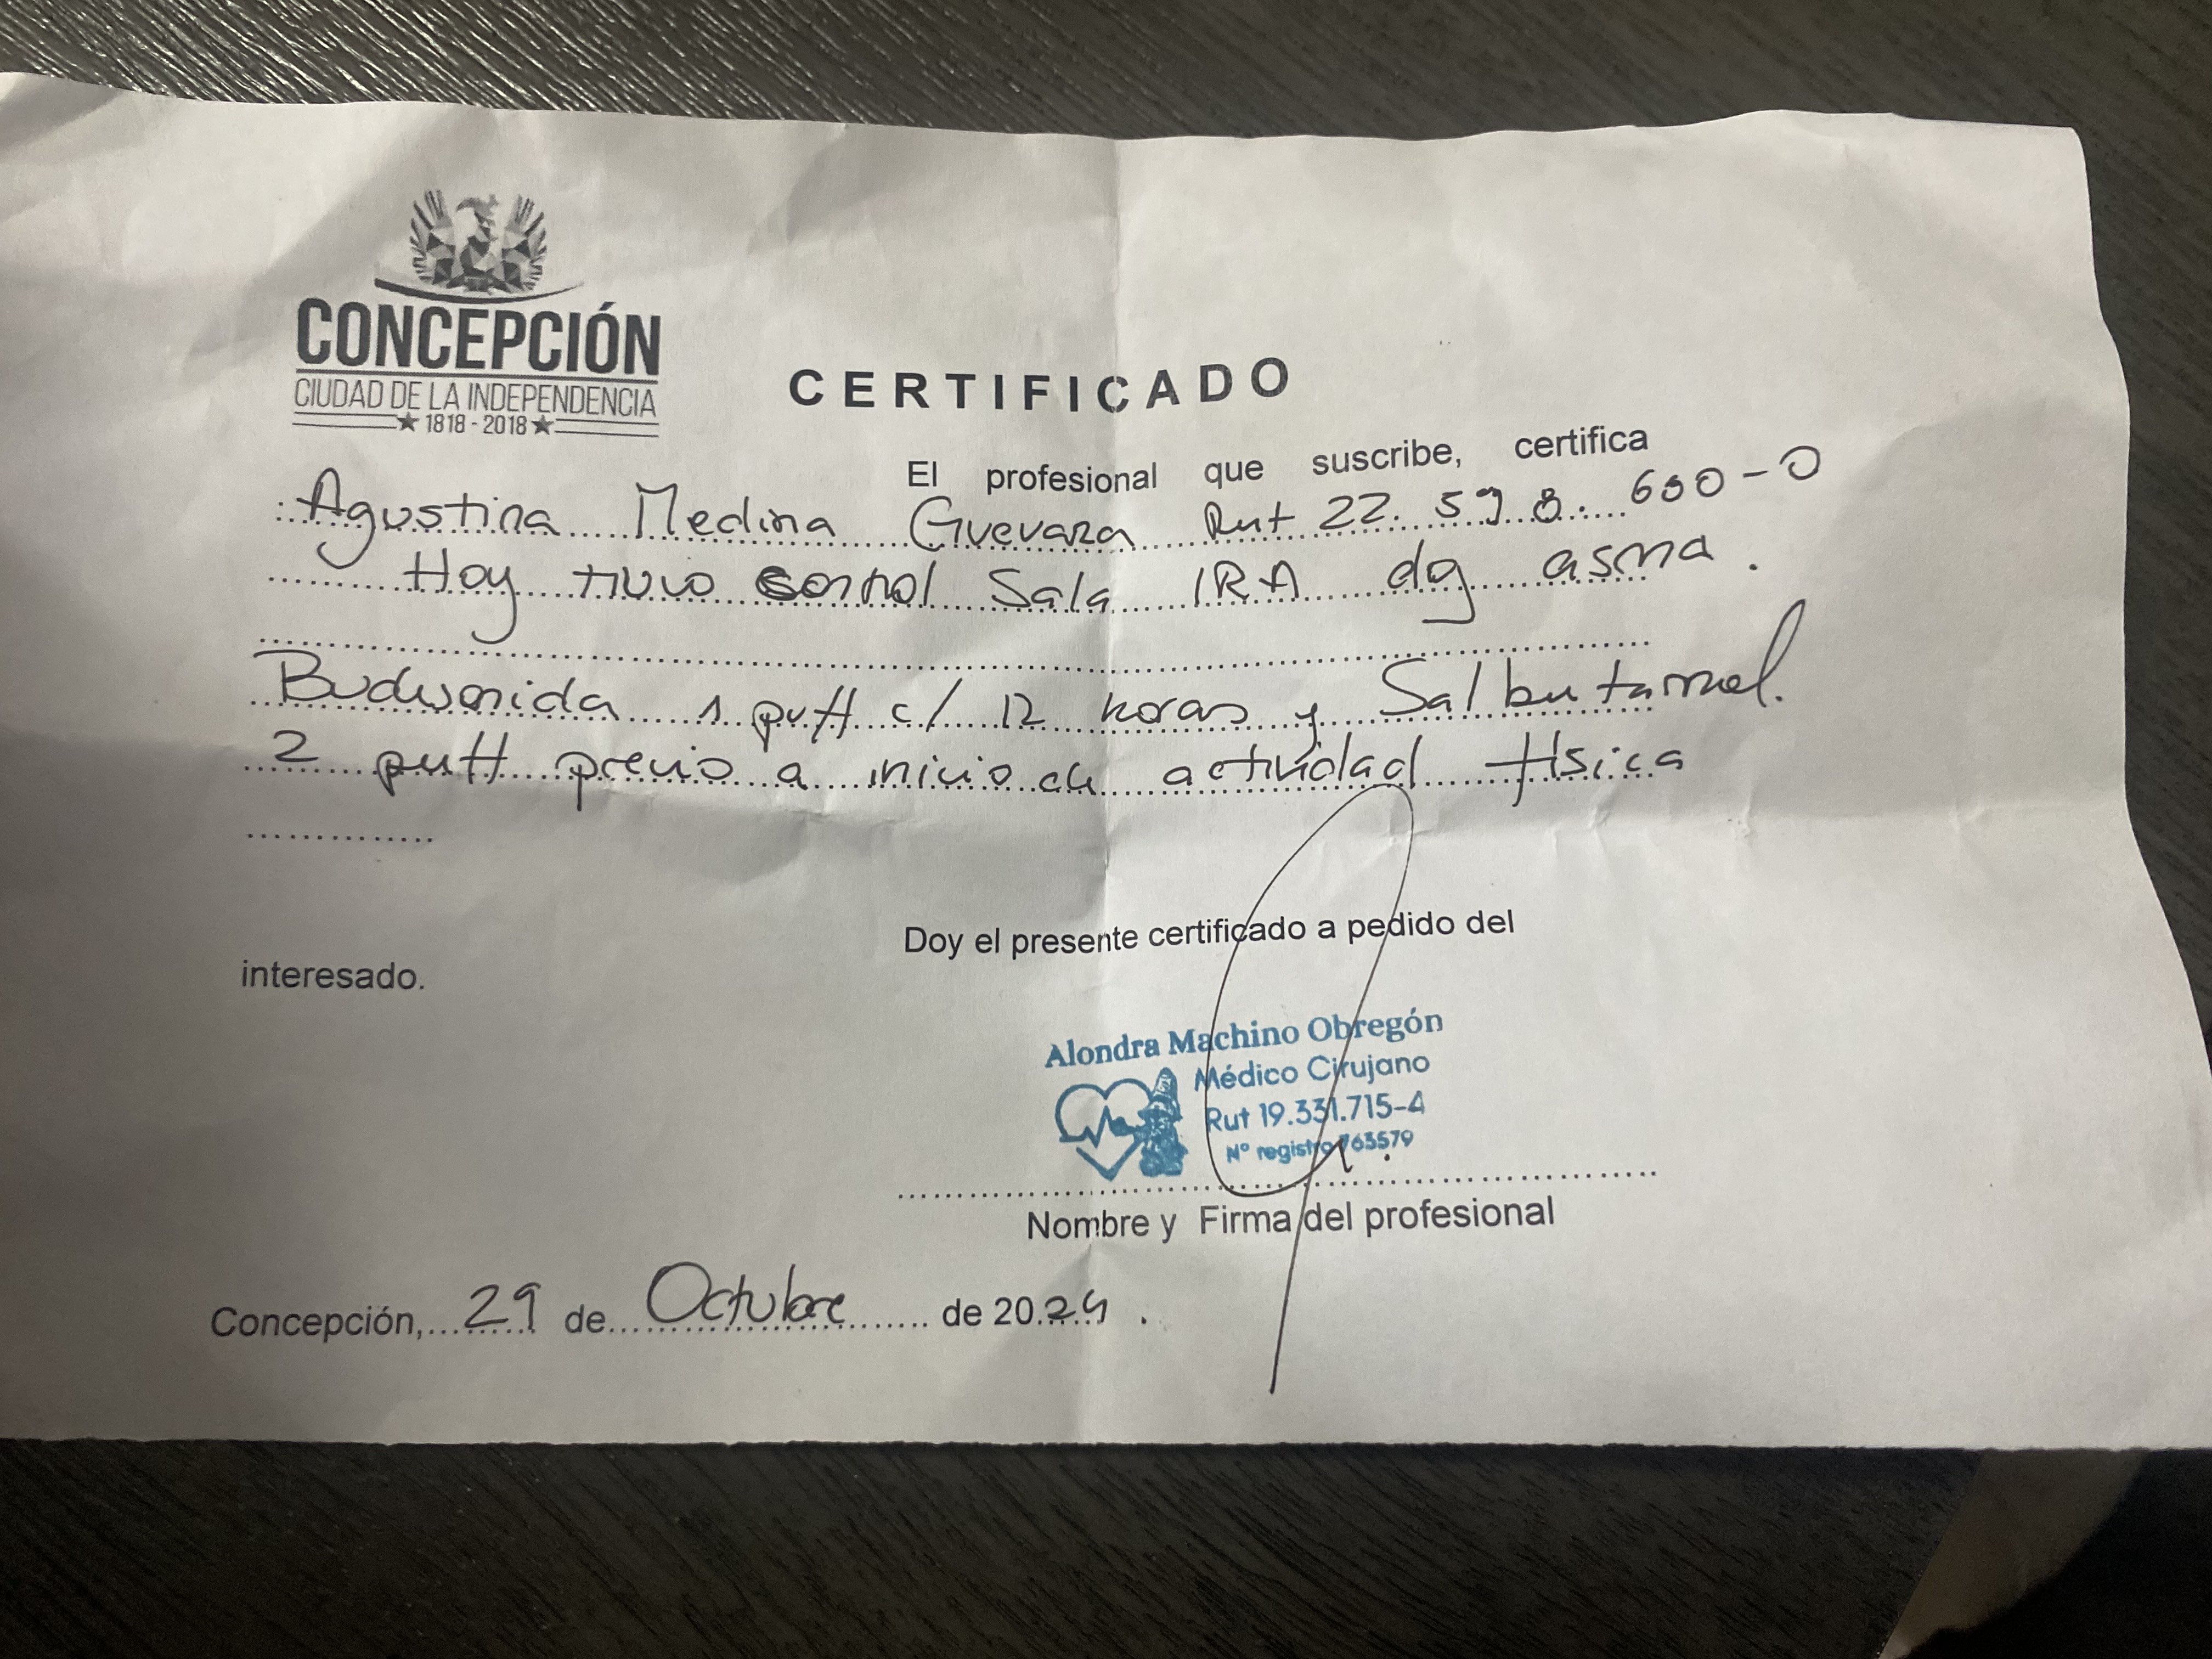 CONCEPCIÓN
CIUDAD DE LA INDEPENDENCIA
★ 1818 - 2018 ★
CERTIFICADO
El profesional que suscribe, certifica
: Agustina Medina Guevara Rut 22.598.600-0
Hoy tuvo control Sala IRA dg asma.
Budesonida 1 puff c/ 12 horas y Salbutamol.
2 puff previo a inicio de actividad física
Doy el presente certificado a pedido del
interesado.
Alondra Machino Obregón
Médico Cirujano
Rut 19.331.715-4
N° registro 763579
Nombre y Firma del profesional
Concepción, 29 de Octubre de 2024.